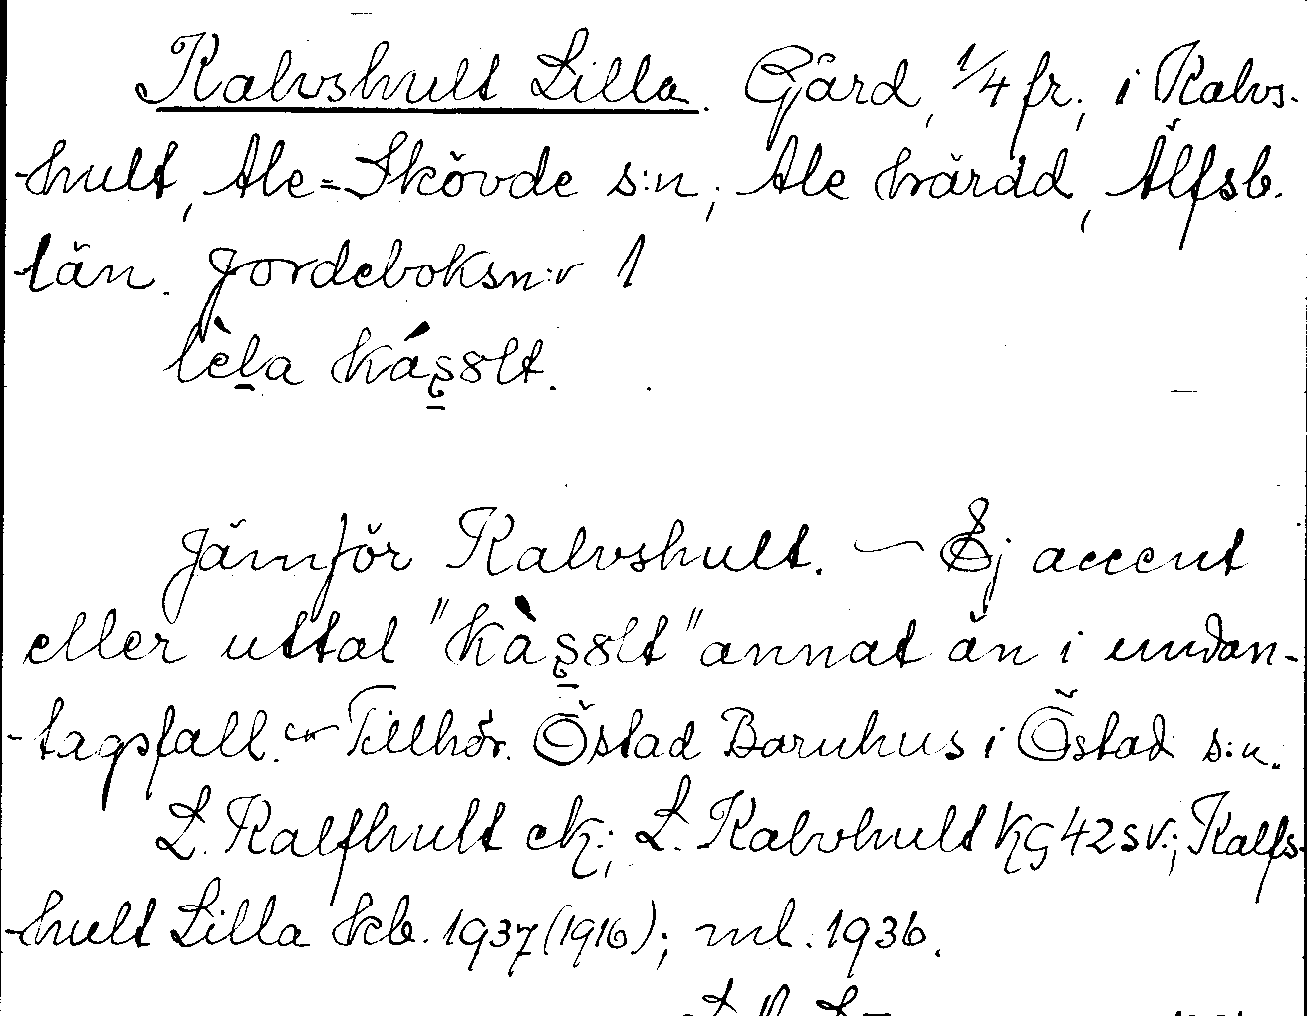 Kalvshult Lilla. Gård, 1/4 fr., i Kalvs-
-hult, Ale-Skövde s:n, Ale härad, Älfsb.
län. Jordeboksn:r 1
lèla kásolt.
Jämför Kalvshult. — Ej accent
eller uttal "kàsolt" annat än i undan-
-tagsfall. — Tillhör. Östad Barnhus i Östad s:n.
L. Kalfhult ek.; L. Kalvhult KG 42 sv.; Kalfs-
-hult Lilla kb. 1937 (1916); ml. 1936.